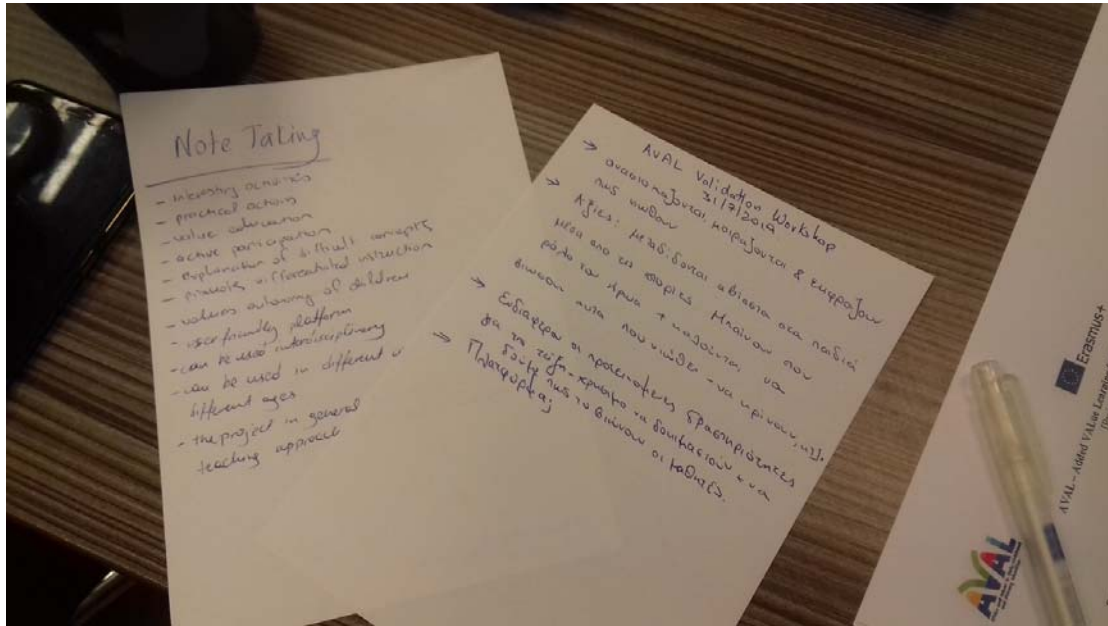 Note Taking
- interesting activities
- practical actions
- value education
- active participation
- explanation of difficult concepts
- promotes differentiated instruction
- values of children
- user friendly platform
- can be used interdisciplinary
- can be used in different
different ages
- the project in general
teaching approach
AVAL Validation Workshop
31/7/2019
→ μοιράζονται & εκφράζουν
πως νιώθουν
→ Αξίες: μεταδίδονται αβίαστα στα παιδιά
μέσα από τις ιστορίες. Μπαίνουν στον
ρόλο του ήρωα + καλούνται να
βιώσουν αυτά που νιώθει - να κρίνουν, κτλ.
→ Ενδιαφέρον οι προτεινόμενες δραστηριότητες
για τη τάξη - χρήσιμο να δοκιμαστούν & να
δούμε πως το βιώνουν οι μαθητές.
→ Πλατφόρμα;
Erasmus+
AVAL – Added VALue Learning
AVAL